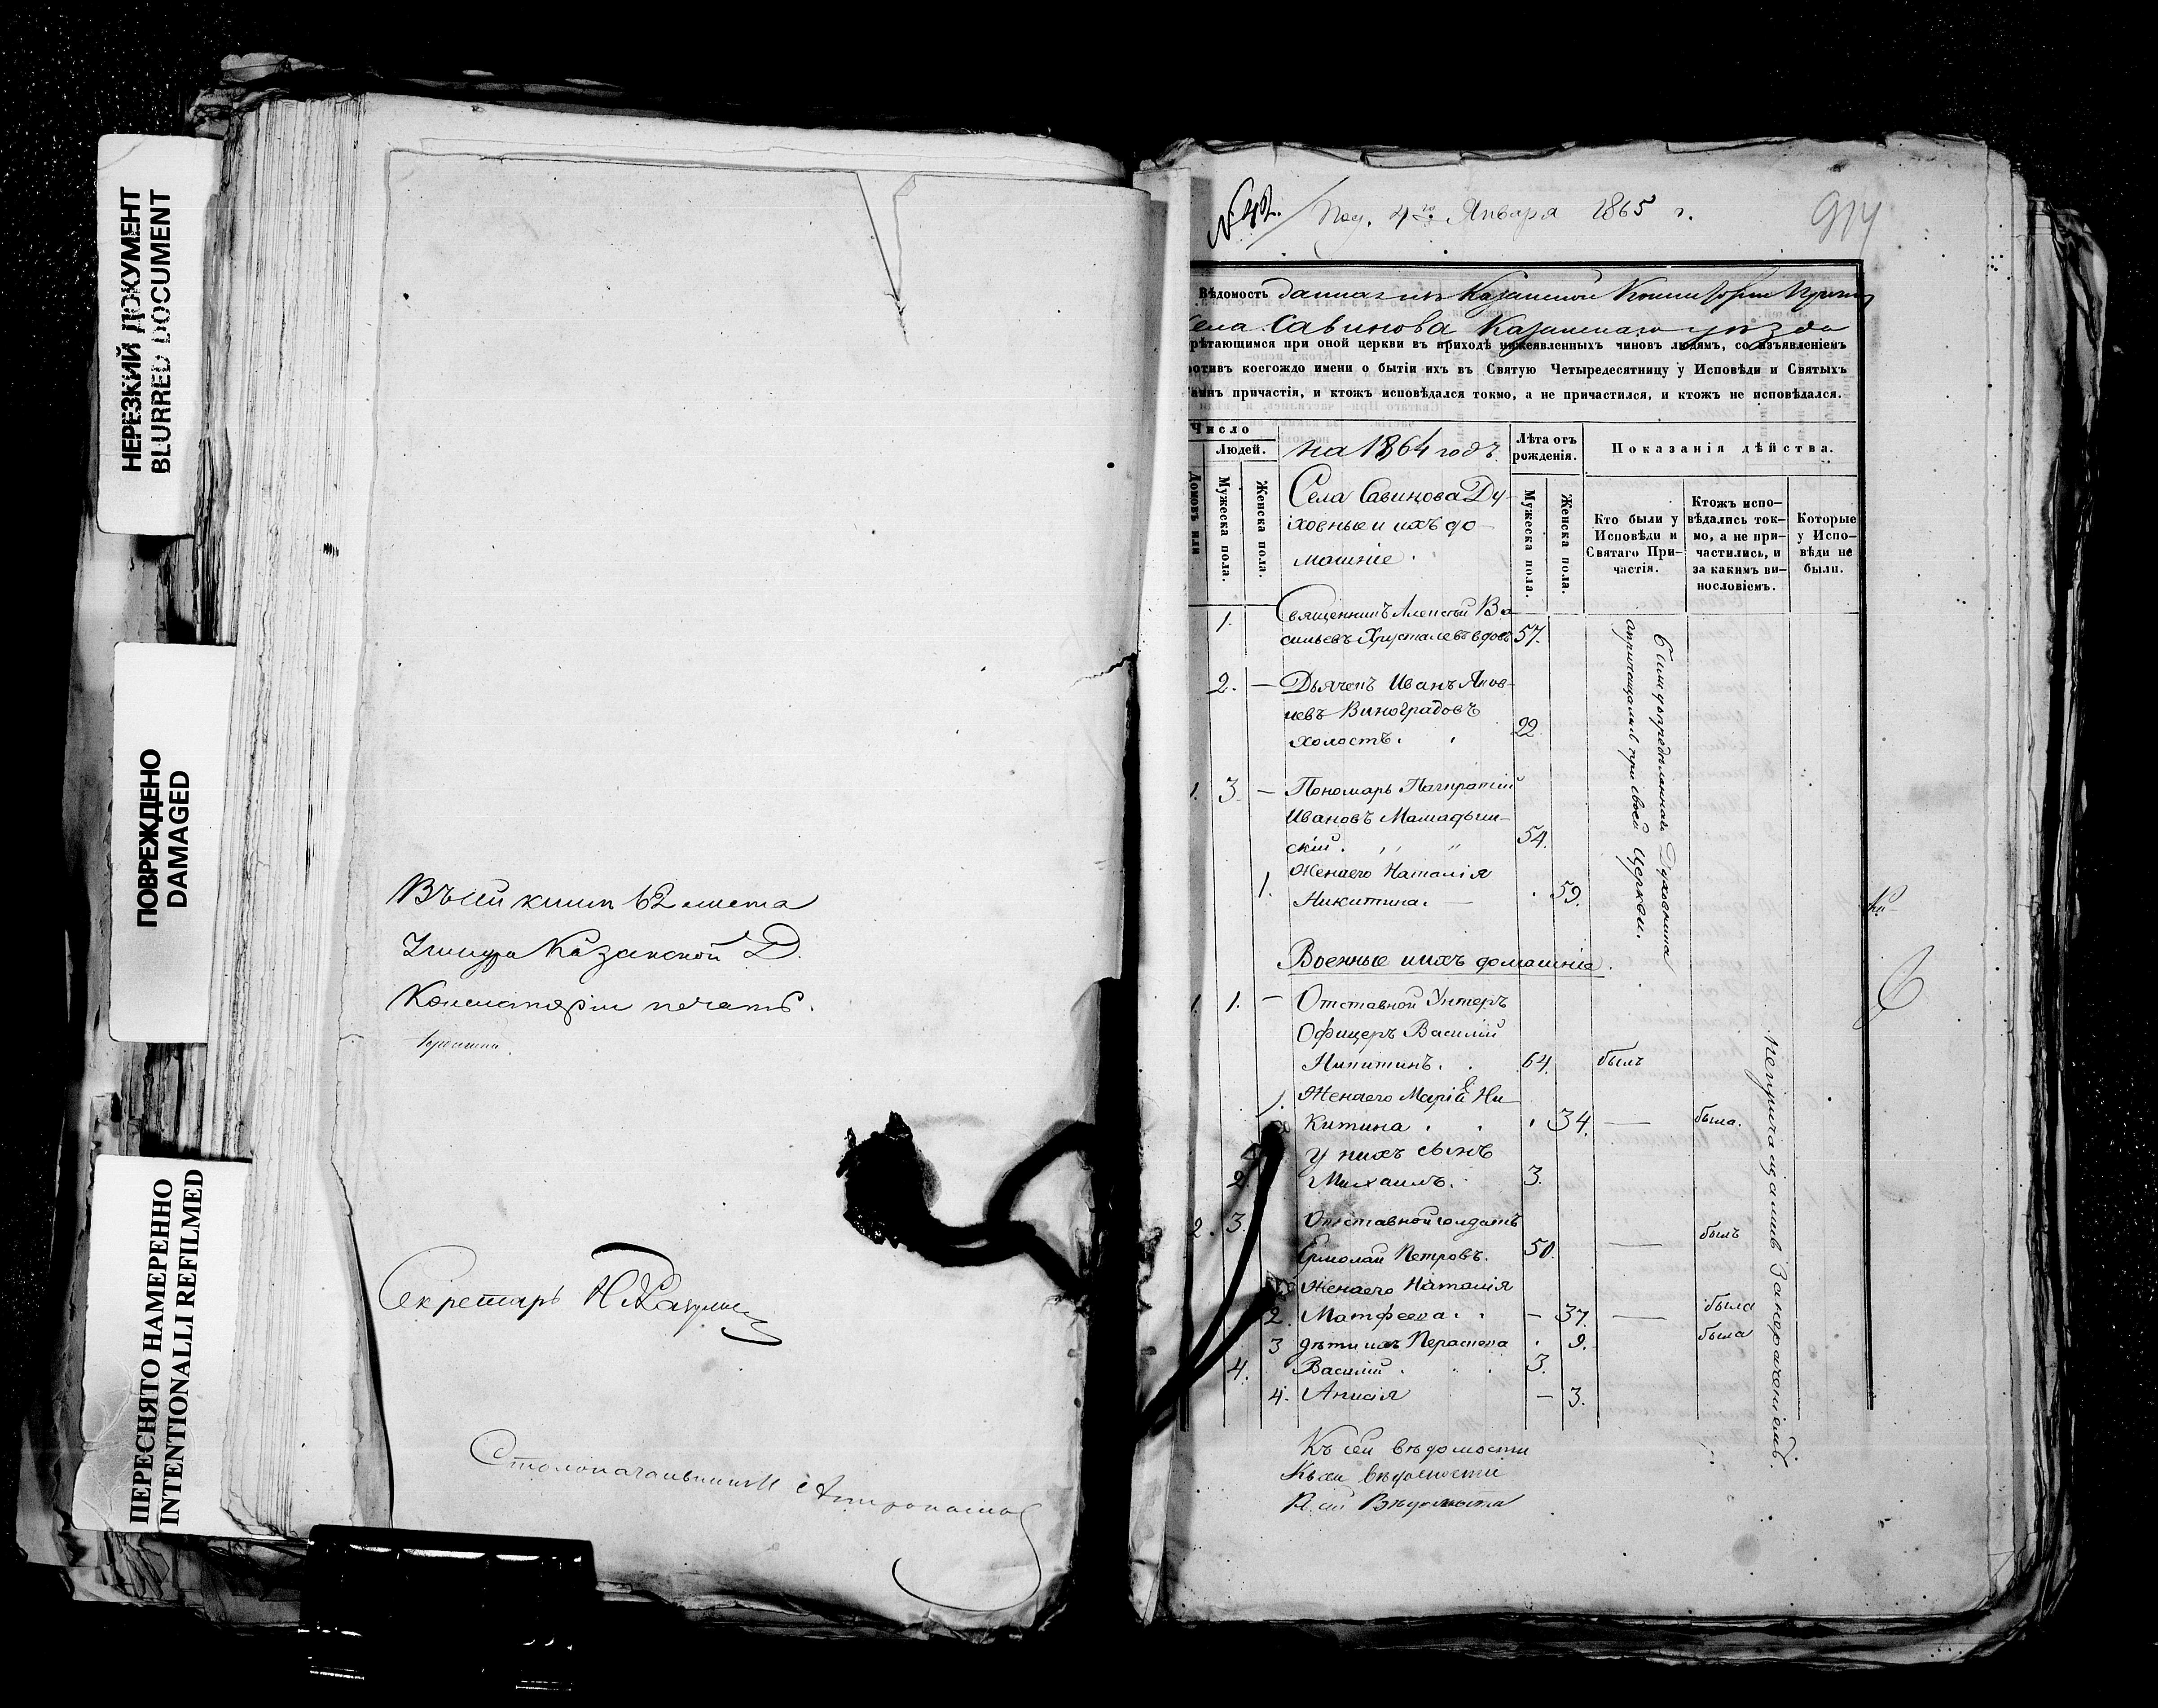 НЕРЕЗКИЙ ДОКУМЕНТ
BLURRED DOCUMENT
ПОВРЕЖДЕНО
DAMAGED
ПЕРЕСНЯТО НАМЕРЕННО
INTENTIONALLI REFILMED
Въ сей книгѣ 62 листа
Казанской Д.
Консисторіи печать.
Секретарь
Столоначальникъ
4го Января 1865 г.
914
Вѣдомость данная изъ Казанской Консисторіи
Села Савинова Казанскаго уѣзда
рѣтающимся при оной церкви въ приходѣ нижеявленныхъ чиновъ людямъ, со изъявленіемъ
ротивъ коегождо имени о бытіи ихъ въ Святую Четыредесятницу у Исповѣди и Святыхъ
аинъ причастія, и ктожъ исповѣдался токмо, а не причастился, и ктожъ не исповѣдался.
Число
Людей.
на 1864 годъ.
Лѣта отъ рожденія.
Показанія дѣйства.
Домовъ или
Мужеска пола.
Женска пола.
Села Савинова Ду-
ховные и ихъ до-
машніе.
Мужеска пола.
Женска пола.
Кто были у Исповѣди и Святаго При-частія.
Ктожъ испо-вѣдались ток-мо, а не при-частились, и за какимъ ви-нословіемъ.
Которые у Испо-вѣди не были.
1. Священникъ Алексѣй Ва-
сильевъ Хрусталевъ вдовъ 57.
2. — Дьячекъ Иванъ Яков-
левъ Виноградовъ
холостъ. 22
1. 3. — Пономарь Панкратій
Ивановъ Мамадыш-
скій. 54.
Жена его Наталія
1. Никитина. — 59.
при своей Церкви.
Военные и ихъ домашніе.
1. 1. — Отставной Унтеръ
Офицеръ Василій
Никитинъ. 64. былъ
Жена его Марія Ни-
1. китина 34. — была.
у нихъ сынъ
2. Михаилъ. 3.
2. 3. Отставной солдатъ
Ермолай Петровъ. 50. — былъ
Жена его Наталія
2. Матфеева. — 37. — была
3 дѣти ихъ Параскева 9. была
4. Василій 3.
4. Анисія — 3.
Къ сей вѣдомости
Къ сей вѣдомости
К сей Вѣдомости